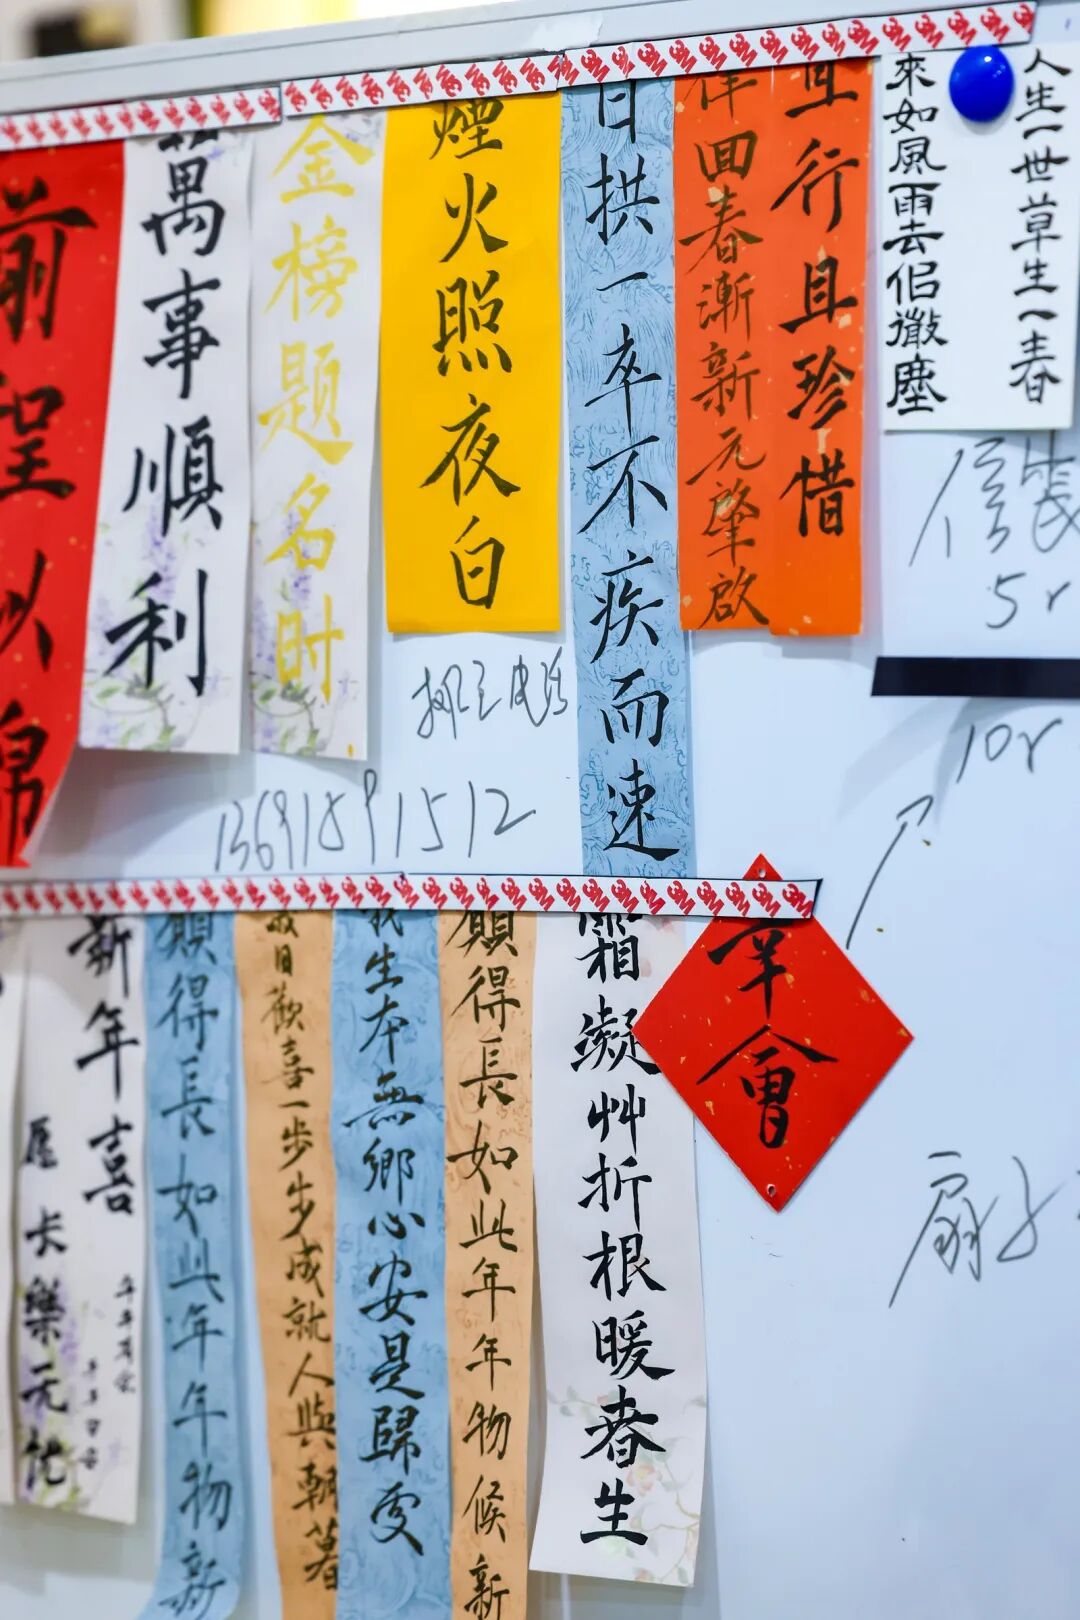 人生一世草生一春
來如風雨去侣微塵
且行且珍惜
律回春漸新元肇啟
日拱一卒不疾而速
煙火照夜白
金榜题名时
萬事順利
前程似錦
5r
10r
13691891512
扇子
羊會
霜凝艸折根暖春生
願得長如此年年物候新
我生本無鄉心安是歸处
歲日歡喜一步步成就人與朝暮
願得長如此年年物新
新年喜